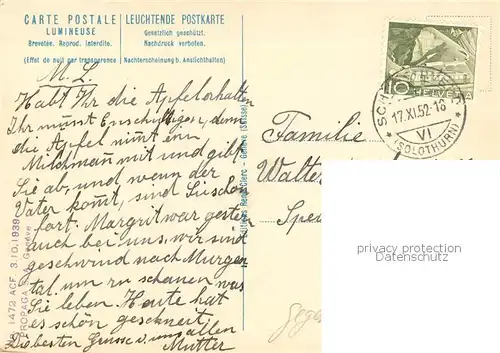 CARTE POSTALE
LUMINEUSE
Brevetée. Reprod. interdite.
(Effet de nuit par transparence)
LEUCHTENDE POSTKARTE
Gesetzlich geschützt.
Nachdruck verboten.
Nachterscheinung b. Anslichthalten)
M. L.
Habt Ihr die Äpfel erhalten
Ihr müsst Enschuldigen, denn
die Äpfel nimt ein
Milchmañ mit und gibt
Sie ab, und wenn der
Vater komt, sind Sie schon
fort. Margrit war gestern
auch bei uns, wir sind
geschwind nach Murgen
tal, um zu schauen was
Sie leben Heute hat
es schön geschneit,
Die besten Grüsse v. uns allen
Mutter
No 1472 ACF 3.10.1939
PROPAGA S.A. Genève
Clerc - Genève (Suisse)
10 HELVETIA
17.XI.52-18
VI
(SOLOTHURN)
Familie
Walter
Spei
privacy protection
Datenschutz